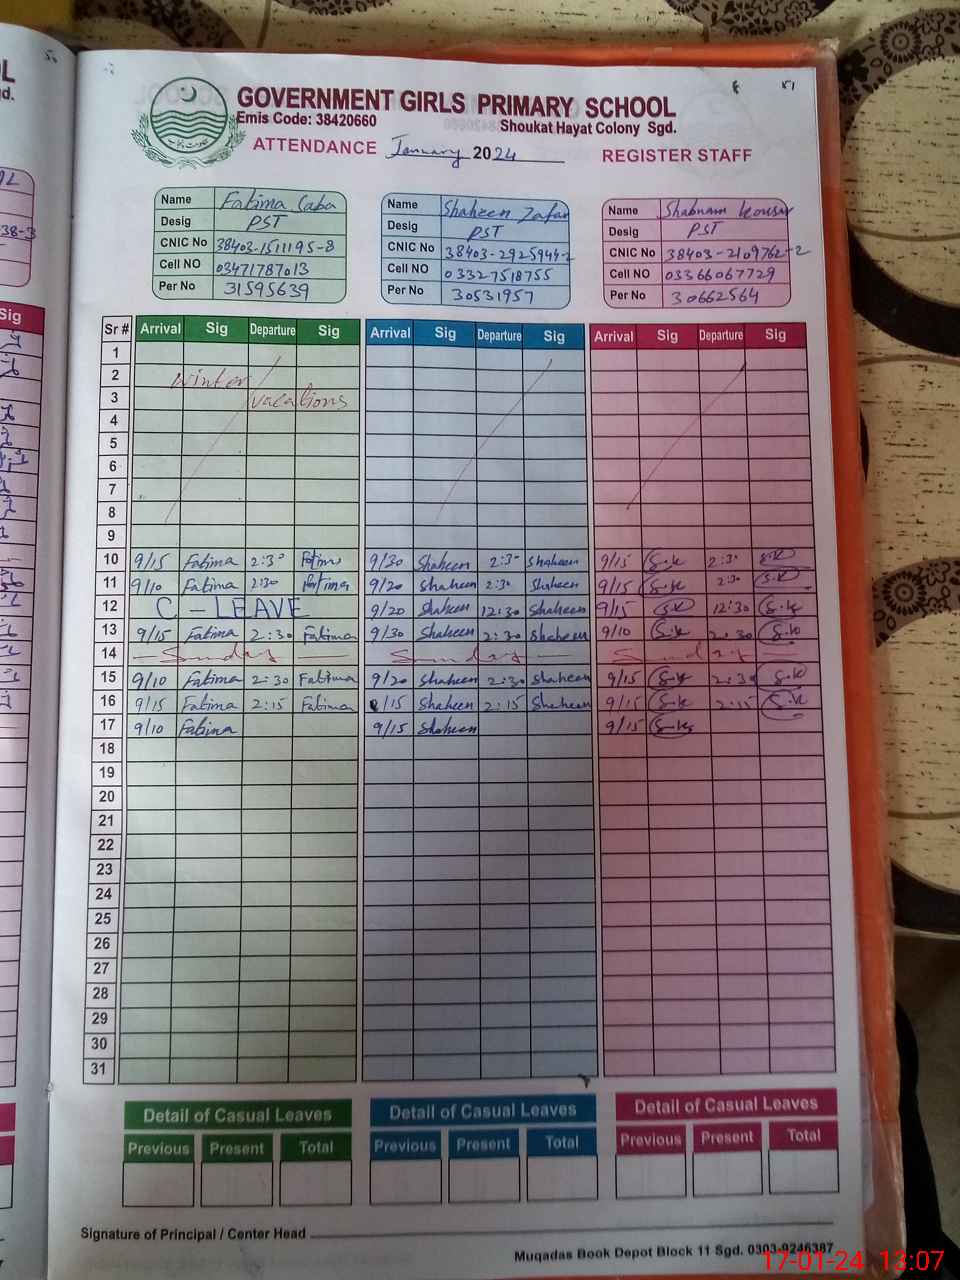 GOVERNMENT GIRLS PRIMARY SCHOOL
Emis Code: 38420660 Shoukat Hayat Colony Sgd.
ATTENDANCE January 2024 REGISTER STAFF
Name Fatima Name Shaheen Zafar Name Shabnam Kousar
Desig PST Desig PST Desig PST
CNIC No 38403-1511195-8 CNIC No 38403-2925944-2 CNIC No 38403-2109762-2
Cell NO 03471787013 Cell NO 03327518755 Cell NO 03366067729
Per No 31595639 Per No 30531957 Per No 30662564
Sr # Arrival Sig Departure Sig Arrival Sig Departure Sig Arrival Sig Departure Sig
1
2 Winter
3 vacations
4
5
6
7
8
9
10 9/15 Fatima 2:30 Fatima 9/30 Shaheen 2:30 Shaheen 9/15 S.K 2:30 S.K
11 9/10 Fatima 2:30 Fatima 9/20 Shaheen 2:30 Shaheen 9/15 S.K 2:30 S.K
12 C - LEAVE 9/20 Shaheen 12:30 Shaheen 9/15 S.K 12:30 S.K
13 9/15 Fatima 2:30 Fatima 9/30 Shaheen 2:30 Shaheen 9/10 S.K 2:30 S.K
14 - Sunday - Sunday - Sunday -
15 9/10 Fatima 2:30 Fatima 9/20 Shaheen 2:30 Shaheen 9/15 S.K 2:30 S.K
16 9/15 Fatima 2:15 Fatima 9/15 Shaheen 2:15 Shaheen 9/15 S.K 2:15 S.K
17 9/10 Fatima 9/15 Shaheen 9/15 S.K
18
19
20
21
22
23
24
25
26
27
28
29
30
31
Detail of Casual Leaves Detail of Casual Leaves Detail of Casual Leaves
Previous Present Total Previous Present Total Previous Present Total
Signature of Principal / Center Head
Muqadas Book Depot Block 11 Sgd. 0303-9246387
17-01-24 13:07